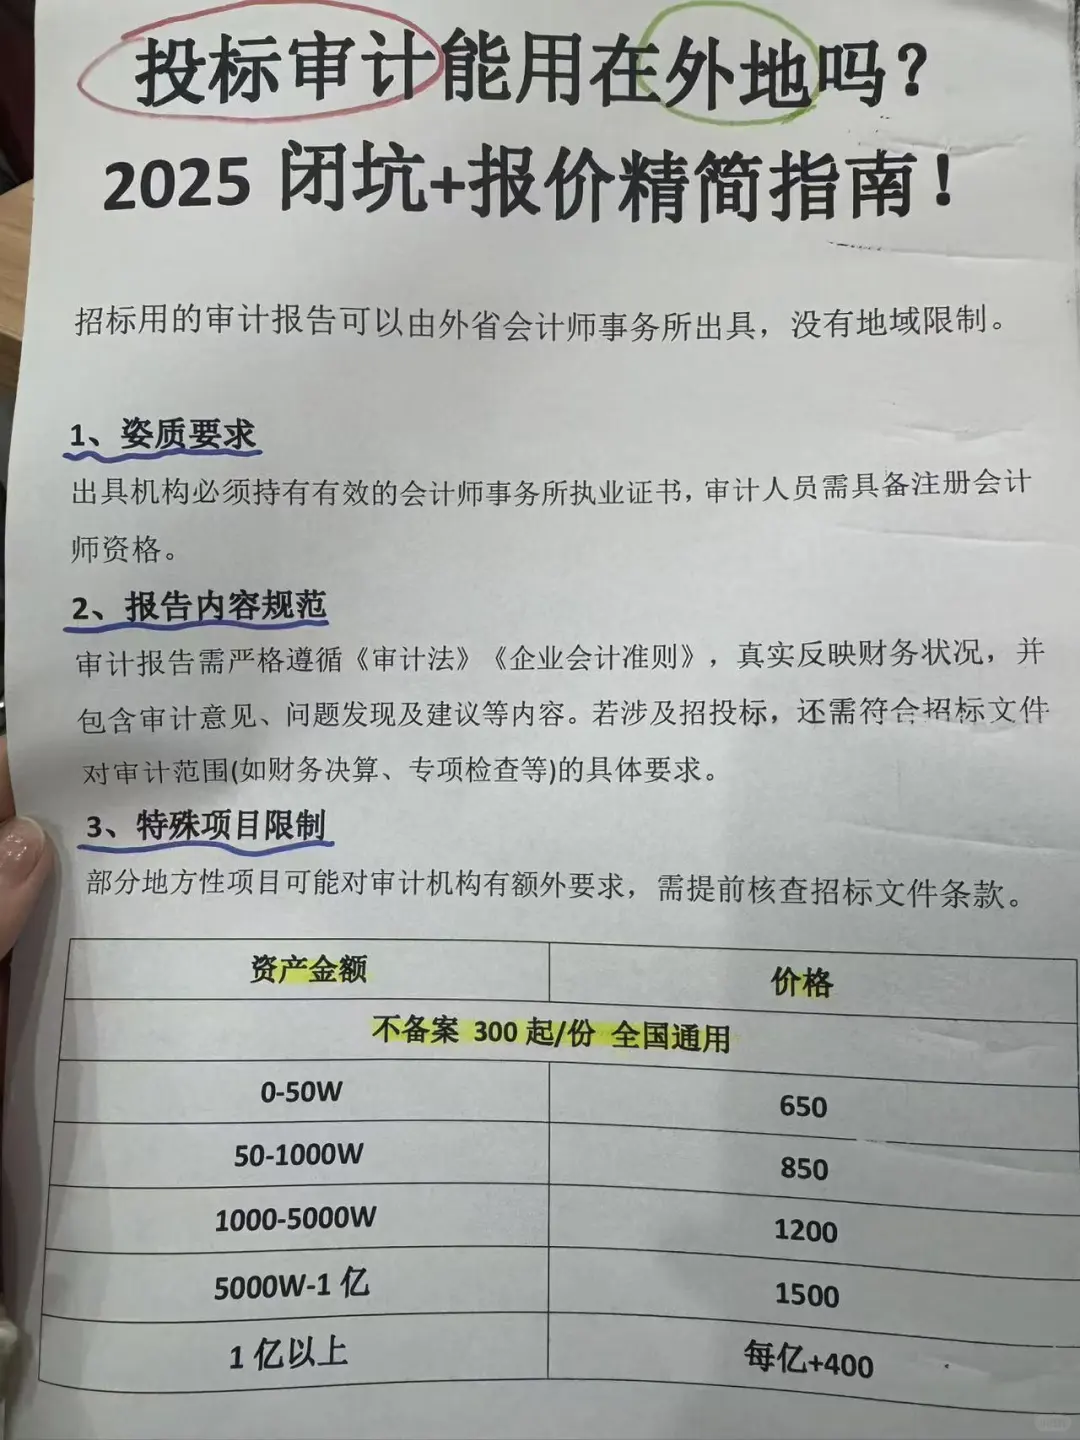 投标审计能用在外地吗？
2025 闭坑+报价精简指南！
招标用的审计报告可以由外省会计师事务所出具，没有地域限制。
1、姿质要求
出具机构必须持有有效的会计师事务所执业证书，审计人员需具备注册会计
师资格。
2、报告内容规范
审计报告需严格遵循《审计法》《企业会计准则》，真实反映财务状况，并
包含审计意见、问题发现及建议等内容。若涉及招投标，还需符合招标文件
对审计范围(如财务决算、专项检查等)的具体要求。
3、特殊项目限制
部分地方性项目可能对审计机构有额外要求，需提前核查招标文件条款。
资产金额 价格
不备案 300 起/份 全国通用
0-50W 650
50-1000W 850
1000-5000W 1200
5000W-1 亿 1500
1 亿以上 每亿+400